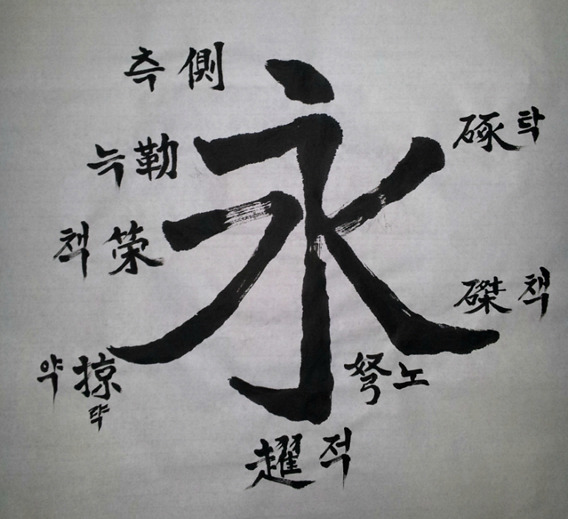 永
측 側
늑 勒
책
약 掠
략
趯 적
弩 노
磔 책
탁